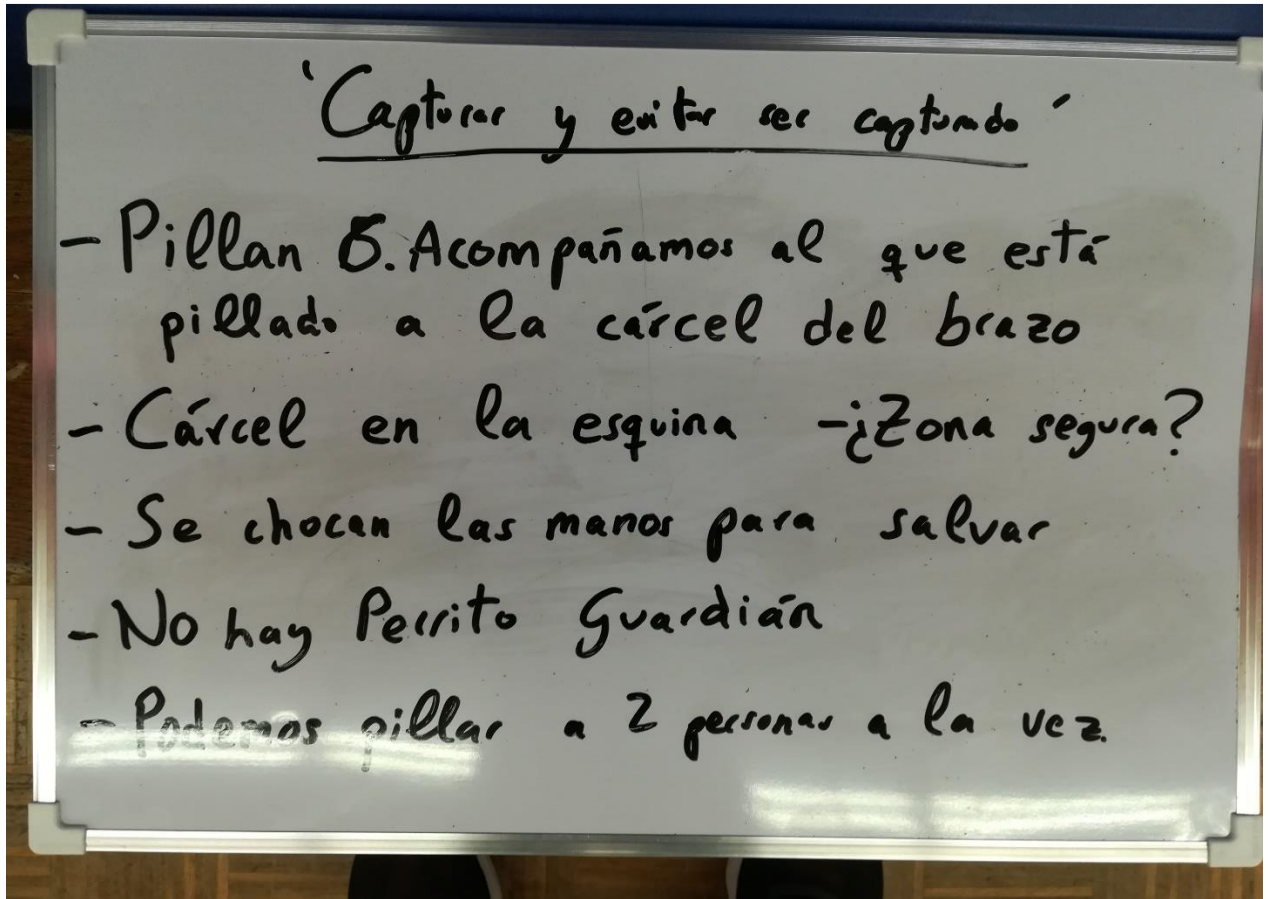 'Capturar y evitar ser capturado'
- Pillan 5. Acompañamos al que está
pillado a la cárcel del brazo
- Cárcel en la esquina -¿Zona segura?
- Se chocan las manos para salvar
- No hay Perrito Guardián
- Podemos pillar a 2 personas a la vez.